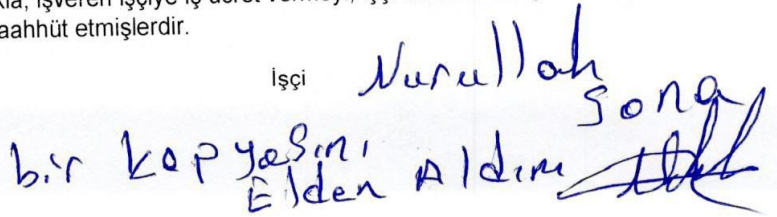 işveren işçiye iş ücret vermeyi, işç
aahhüt etmişlerdir.
İşçi Nurullah
Sona
bir kopyasını
Elden Aldım